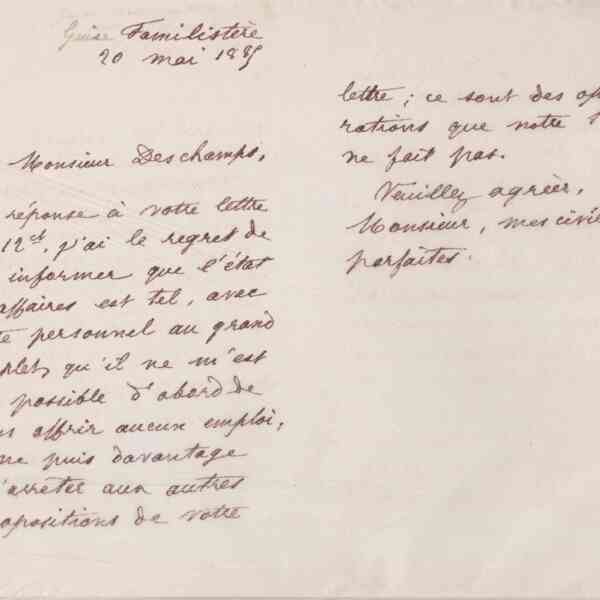 Guise Familistère
20 mai 1885
Monsieur Deschamps,
réponse à votre lettre
12 ct, j'ai le regret de
informer que l'état
affaires est tel, avec
te personnel au grand
plet, qu'il ne m'est
possible d'abord de
us offrir aucun emploi,
ne puis davantage
'arrêter aux autres
opositions de votre
lettre ; ce sont des opé
rations que notre
ne fait pas.
Veuillez agréer,
Monsieur, mes civil
parfaites.